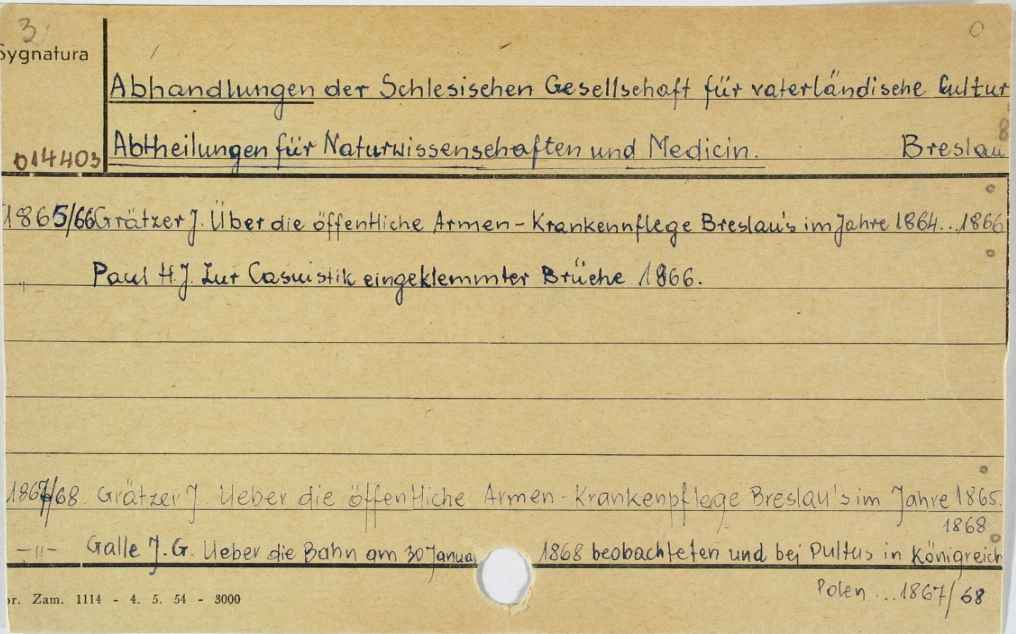 3.
Sygnatura
Abhandlungen der Schlesischen Gesellschaft für vaterländische Cultur
014403 Abtheilungen für Naturwissenschaften und Medicin. Breslau
1865/66 Grätzer J. Über die öffentliche Armen-Krankennflege Breslau's im Jahre 1864...1866
-"- Paul H.J. Zur Casuistik eingeklemmter Brüche 1866.
1867/68 Grätzer J Ueber die öffentliche Armen-Krankenpflege Breslau's im Jahre 1865.
1868
-"- Galle J.G. Ueber die Bahn am 30 Janua 1868 beobachteten und bei Pultus in Königreich
Polen...1867/68
or. Zam. 1114 - 4. 5. 54 - 3000